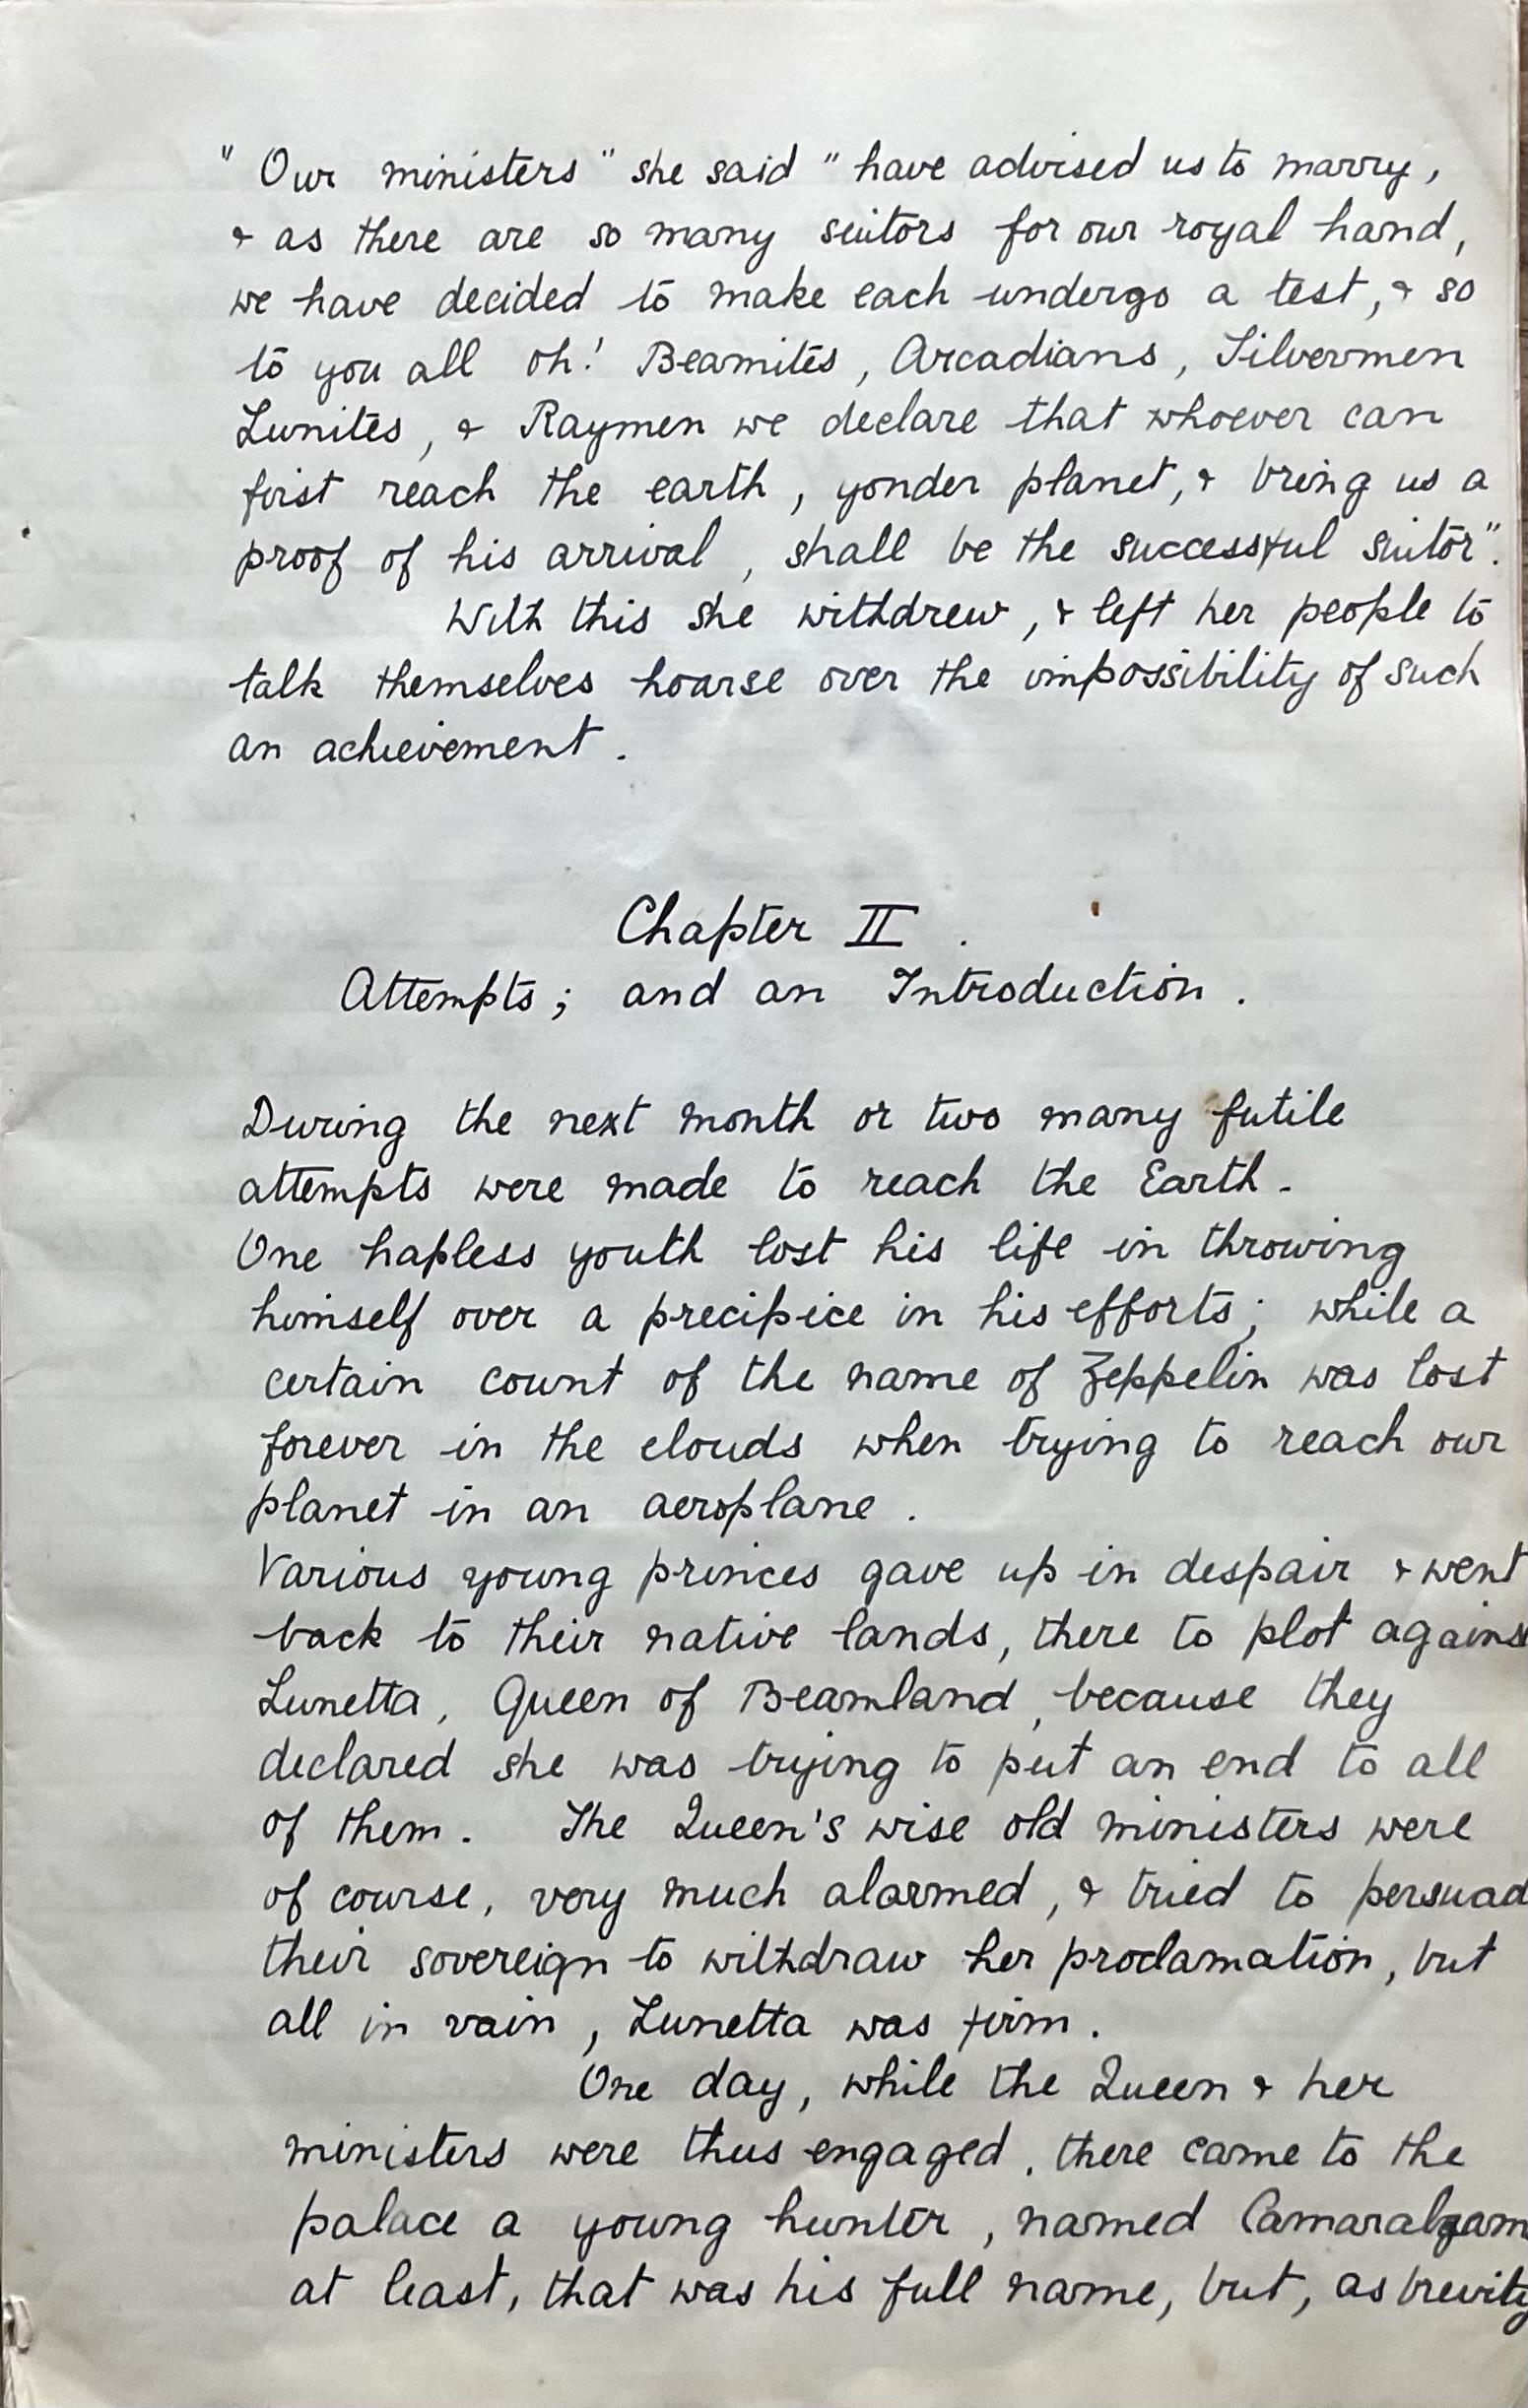 " Our ministers " she said " have advised us to marry,
& as there are so many suitors for our royal hand,
we have decided to make each undergo a test, & so
to you all oh! Beamites, Arcadians, Silvermen
Lunites, & Raymen we declare that whoever can
first reach the earth, yonder planet, & bring us a
proof of his arrival, shall be the successful suitor".
With this she withdrew, & left her people to
talk themselves hoarse over the impossibility of such
an achievement.
Chapter II.
Attempts; and an Introduction.
During the next month or two many futile
attempts were made to reach the Earth.
One hapless youth lost his life in throwing
himself over a precipice in his efforts; while a
certain count of the name of Zeppelin was lost
forever in the clouds when trying to reach our
planet in an aeroplane.
Various young princes gave up in despair & went
back to their native lands, there to plot agains
Lunetta, Queen of Beamland, because they
declared she was trying to put an end to all
of them. The Queen's wise old ministers were
of course, very much alarmed, & tried to persuad
their sovereign to withdraw her proclamation, but
all in vain, Lunetta was firm.
One day, while the Queen & her
ministers were thus engaged, there came to the
palace a young hunter, named Camaralzam
at least, that was his full name, but, as brevity